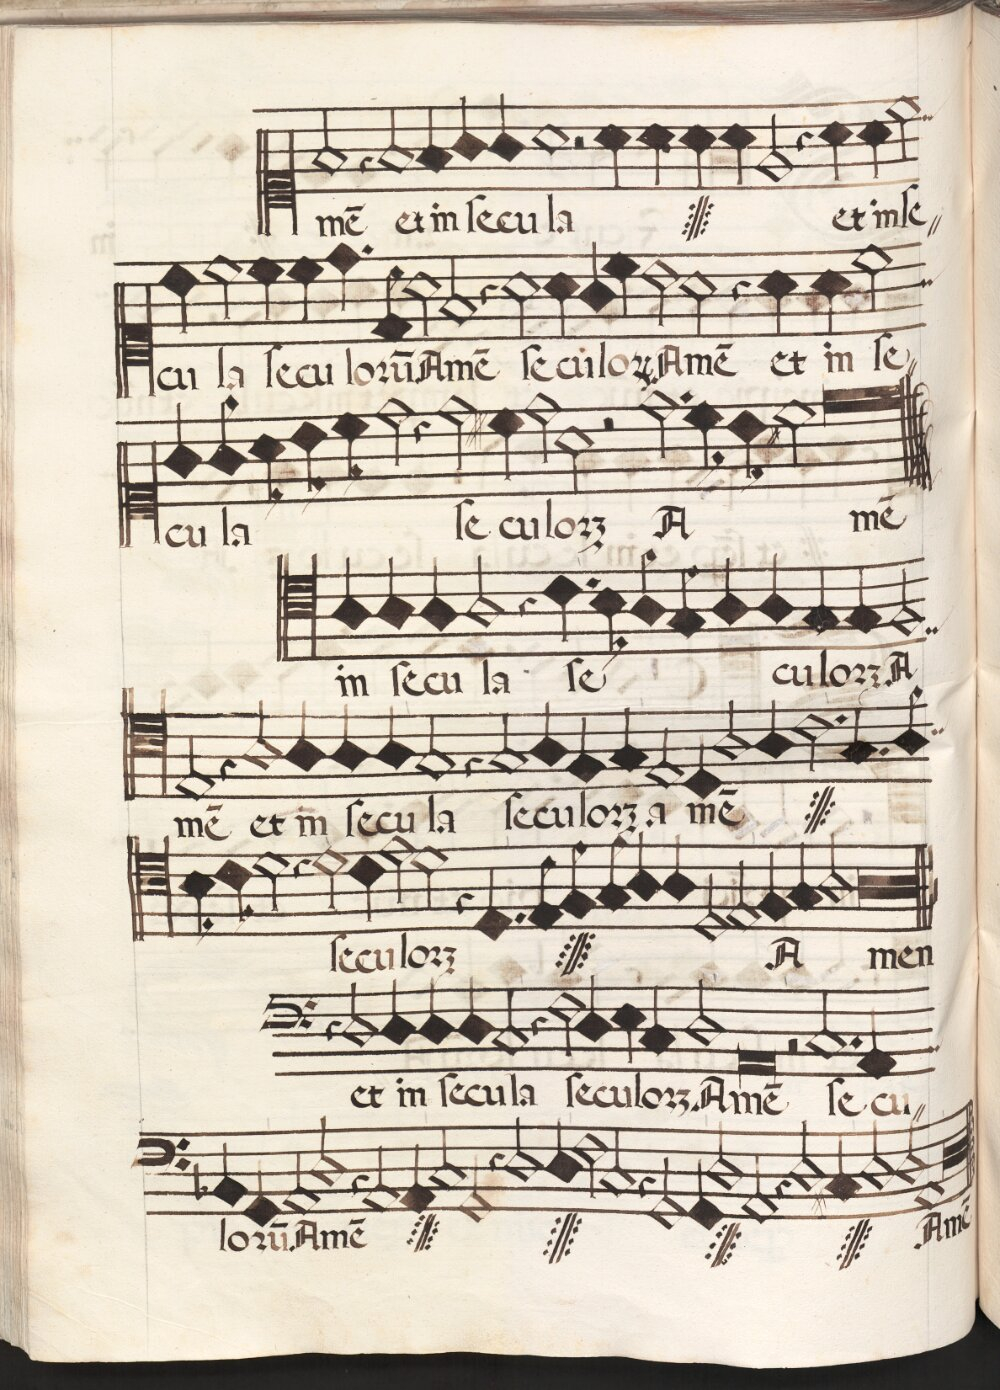 mē et in secula et in se
cu la secu lorū Amē se culorꝝ Amē et in se
cu la se culorꝝ A mē
in secu la se culorꝝ A
mē et in secu la seculorꝝ a mē
seculorꝝ A men
et in secula seculorꝝ Amē se cu
lorū Amē Amē